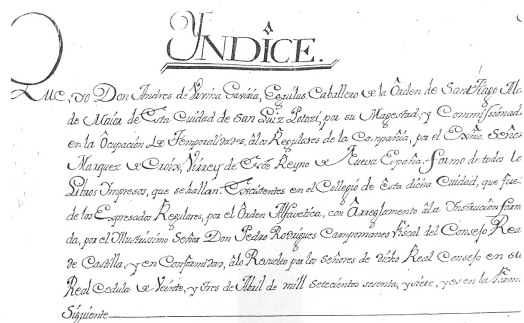 YNDÍCE.
QUE, YO Don Andres de Urvina Gaviria, Eguilus Caballero de la Orden de Santiago Al
de Maior de Esta Cuidad de San Luiz Potozi, por su Magestad, y Commissionad
en la Ocupacion de Temporalidades, â los Regulares de la Compañia, por el Exmo. Señor
Marquez de Croix, Virrey de Este Reyno de Nueva España. formo de todos lo
Libros Impresos, que se hallan Excistentes en el Collegio de Esta dicha Cuidad, que fue
de los Expresados Regulares, por el Orden Alfavetica, con Arreglamento âla Instruccion form
da, por el Illustrissimo Señor Don Pedro Rodrigues Campomanes Fiscal del Consejo Rea
de Castilla, y en Conformidad, âlo Resuelto por los Señores de dicho Real Consejo en su
Real Cedula de Veinte, y tres de Abril de mill setecientos sesenta, y siete, y es en la Form
Siguiente